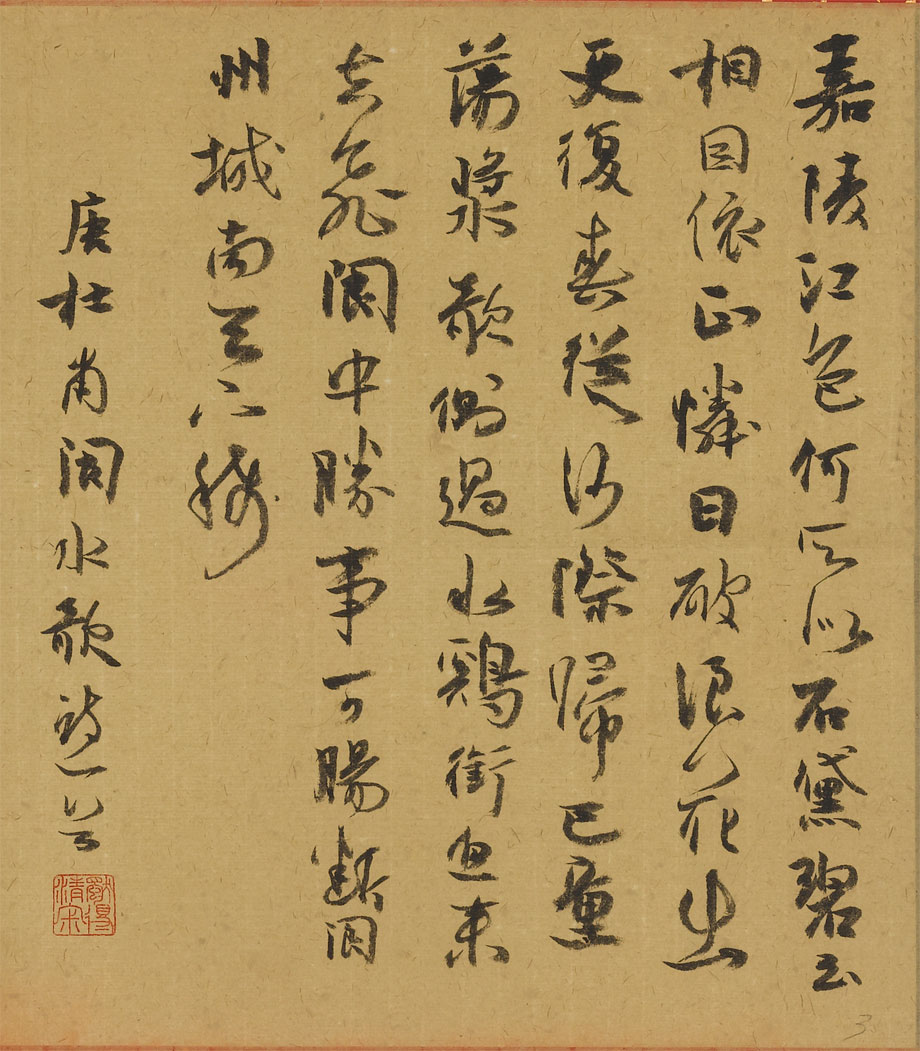 嘉陵江色何所似石黛碧玉
相因依正憐日破浪花出
更復春從沙際歸巴童
蕩槳欹側過水鷄銜魚來
去飛閬中勝事可腸斷閬
州城南天下稀
唐杜甫閬水歌詩一首
3